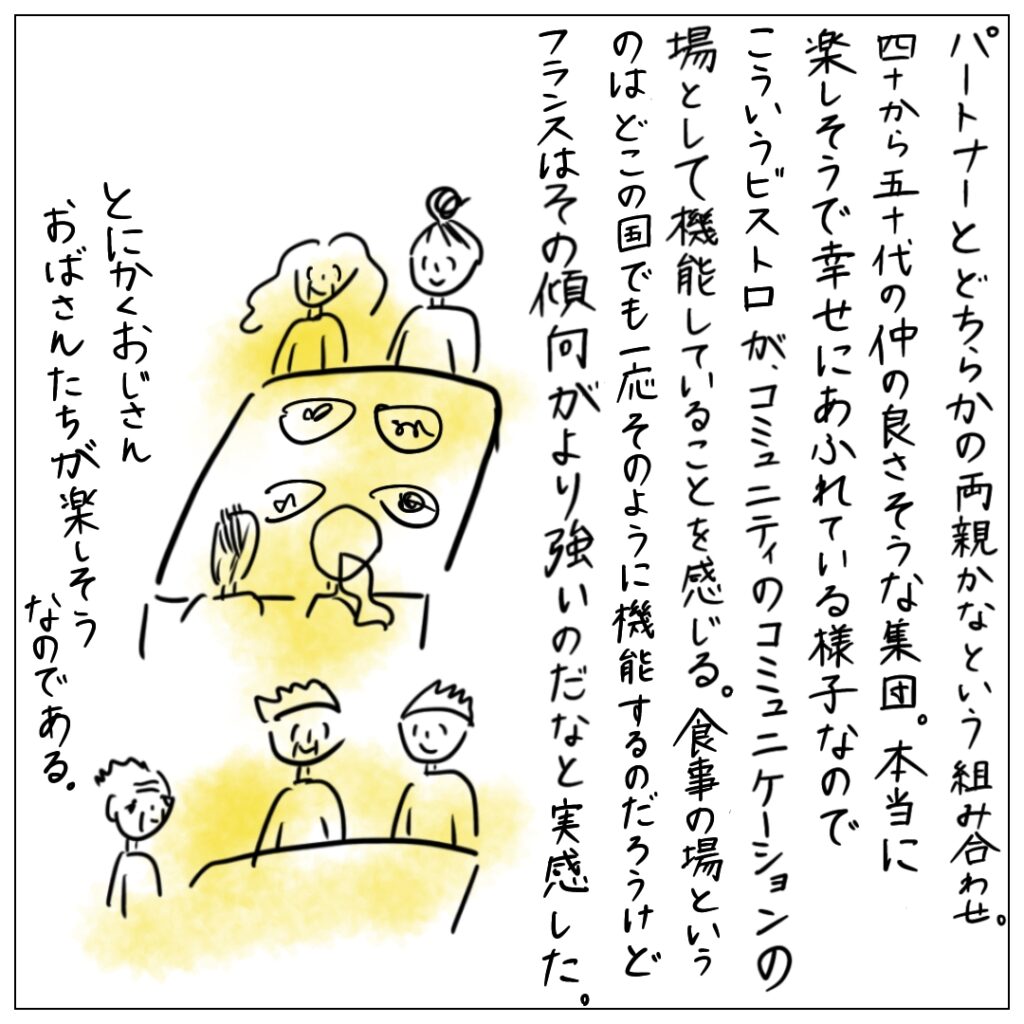 パートナーとどちらかの両親かなという組み合わせ。
四十から五十代の仲の良さそうな集団。本当に
楽しそうで幸せにあふれている様子なので
こういうビストロが、コミュニティのコミュニケーションの
場として機能していることを感じる。食事の場という
のはどこの国でも一応そのように機能するのだろうけど
フランスはその傾向がより強いのだなと実感した。
とにかくおじさん
おばさんたちが楽しそう
なのである。